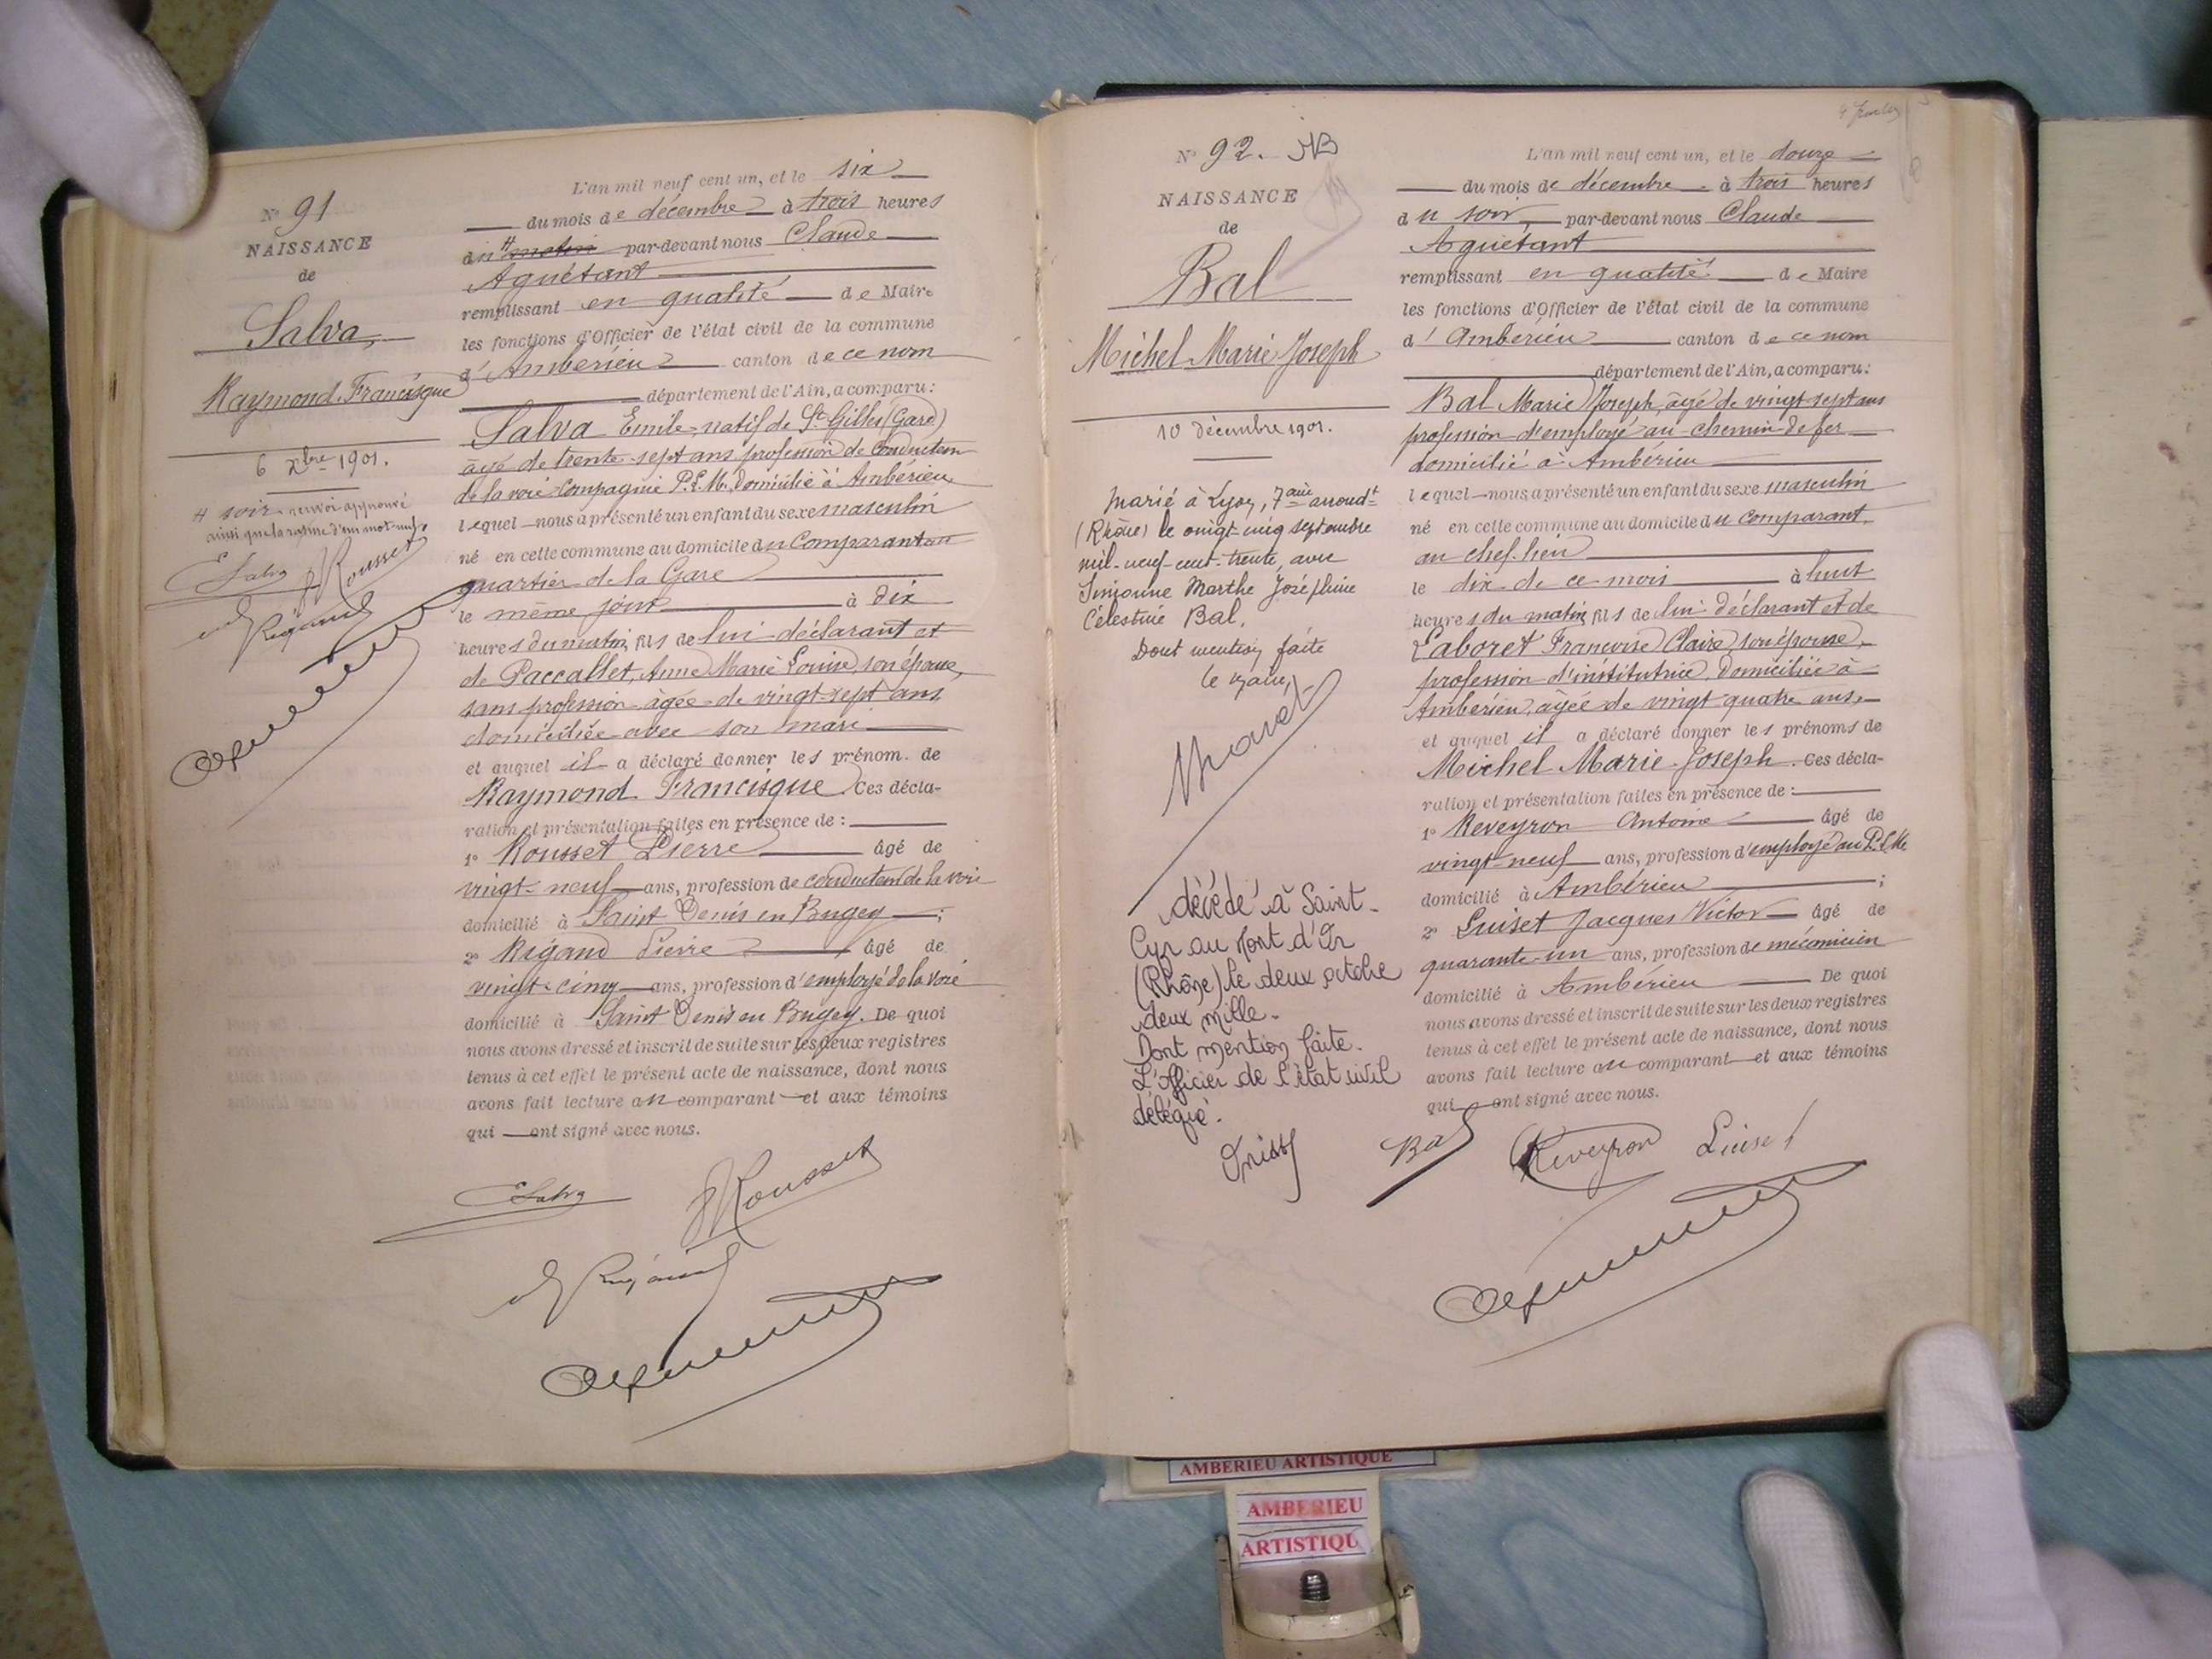 N° 91
NAISSANCE
de
Salva,
Raymond Francisque
6 Xbre 1901.
# soir renvoi approuvé
ainsi que la rature d'un mot nul
E Salva
Rousset
Rigaud
L'an mil neuf cent un, et le six
du mois de décembre à trois heures
du # matin par-devant nous Claude
Aguétant
remplissant en qualité de Maire
les fonctions d'Officier de l'état civil de la commune
d'Ambérieu canton de ce nom
département de l'Ain, a comparu:
Salva Emile, natif de St Gilles (Gard)
âgé de trente-sept ans profession de Conducteur
de la voie Compagnie P.L.M. domicilié à Ambérieu
lequel nous a présenté un enfant du sexe masculin
né en cette commune au domicile du Comparant au
quartier de la Gare
le même jour à dix
heures du matin, fils de lui déclarant et
de Paccallet, Anne Marie Louise, son épouse,
sans profession âgée de vingt-sept ans
domiciliée avec son mari
et auquel il a déclaré donner les prénom. de
Raymond Francisque Ces décla-
ration et présentation faites en présence de :
1° Rousset Pierre âgé de
vingt-neuf ans, profession de conducteur de la voie
domicilié à Saint Denis en Bugey ;
2° Rigaud Pierre âgé de
vingt-cinq ans, profession d'employé de la voie
domicilié à Saint Denis en Bugey. De quoi
nous avons dressé et inscrit de suite sur les deux registres
tenus à cet effet le présent acte de naissance, dont nous
avons fait lecture au comparant et aux témoins
qui ont signé avec nous.
E Salva
Rousset
Rigaud
N° 92. NB
NAISSANCE
de
Bal
Michel Marie Joseph
10 décembre 1901.
Marié à Lyon, 7ème arrondt
(Rhône) le vingt-cinq septembre
mil-neuf-cent-trente, avec
Simonne Marthe Joséphine
Célestine Bal.
Dont mention faite
le maire,
décédé à Saint-
Cyr au Mont d'Or
(Rhône) le deux octobre
deux mille.
Dont mention faite.
L'officier de l'état civil
délégué.
L'an mil neuf cent un, et le douze
du mois de décembre à trois heures
du soir par-devant nous Claude
Aguétant
remplissant en qualité de Maire
les fonctions d'Officier de l'état civil de la commune
d'Ambérieu canton de ce nom
département de l'Ain, a comparu:
Bal Marie Joseph, âgé de vingt sept ans
profession d'employé au chemin de fer
domicilié à Ambérieu
lequel nous a présenté un enfant du sexe masculin
né en cette commune au domicile du comparant,
au chef-lieu
le dix de ce mois à huit
heures du matin fils de lui déclarant et de
Laboret Françoise Claire, son épouse,
profession d'institutrice, domiciliée à
Ambérieu, âgée de vingt quatre ans,
et auquel il a déclaré donner les prénoms de
Michel Marie Joseph. Ces décla-
ration et présentation faites en présence de :
1° Reveyron Antoine âgé de
vingt-neuf ans, profession d'employé au P.L.M.
domicilié à Ambérieu ;
2° Luiset Jacques Victor âgé de
quarante-un ans, profession de mécanicien
domicilié à Ambérieu De quoi
nous avons dressé et inscrit de suite sur les deux registres
tenus à cet effet le présent acte de naissance, dont nous
avons fait lecture au comparant et aux témoins
qui ont signé avec nous.
Bal Reveyron Luiset
AMBERIEU ARTISTIQUE
AMBERIEU
ARTISTIQU